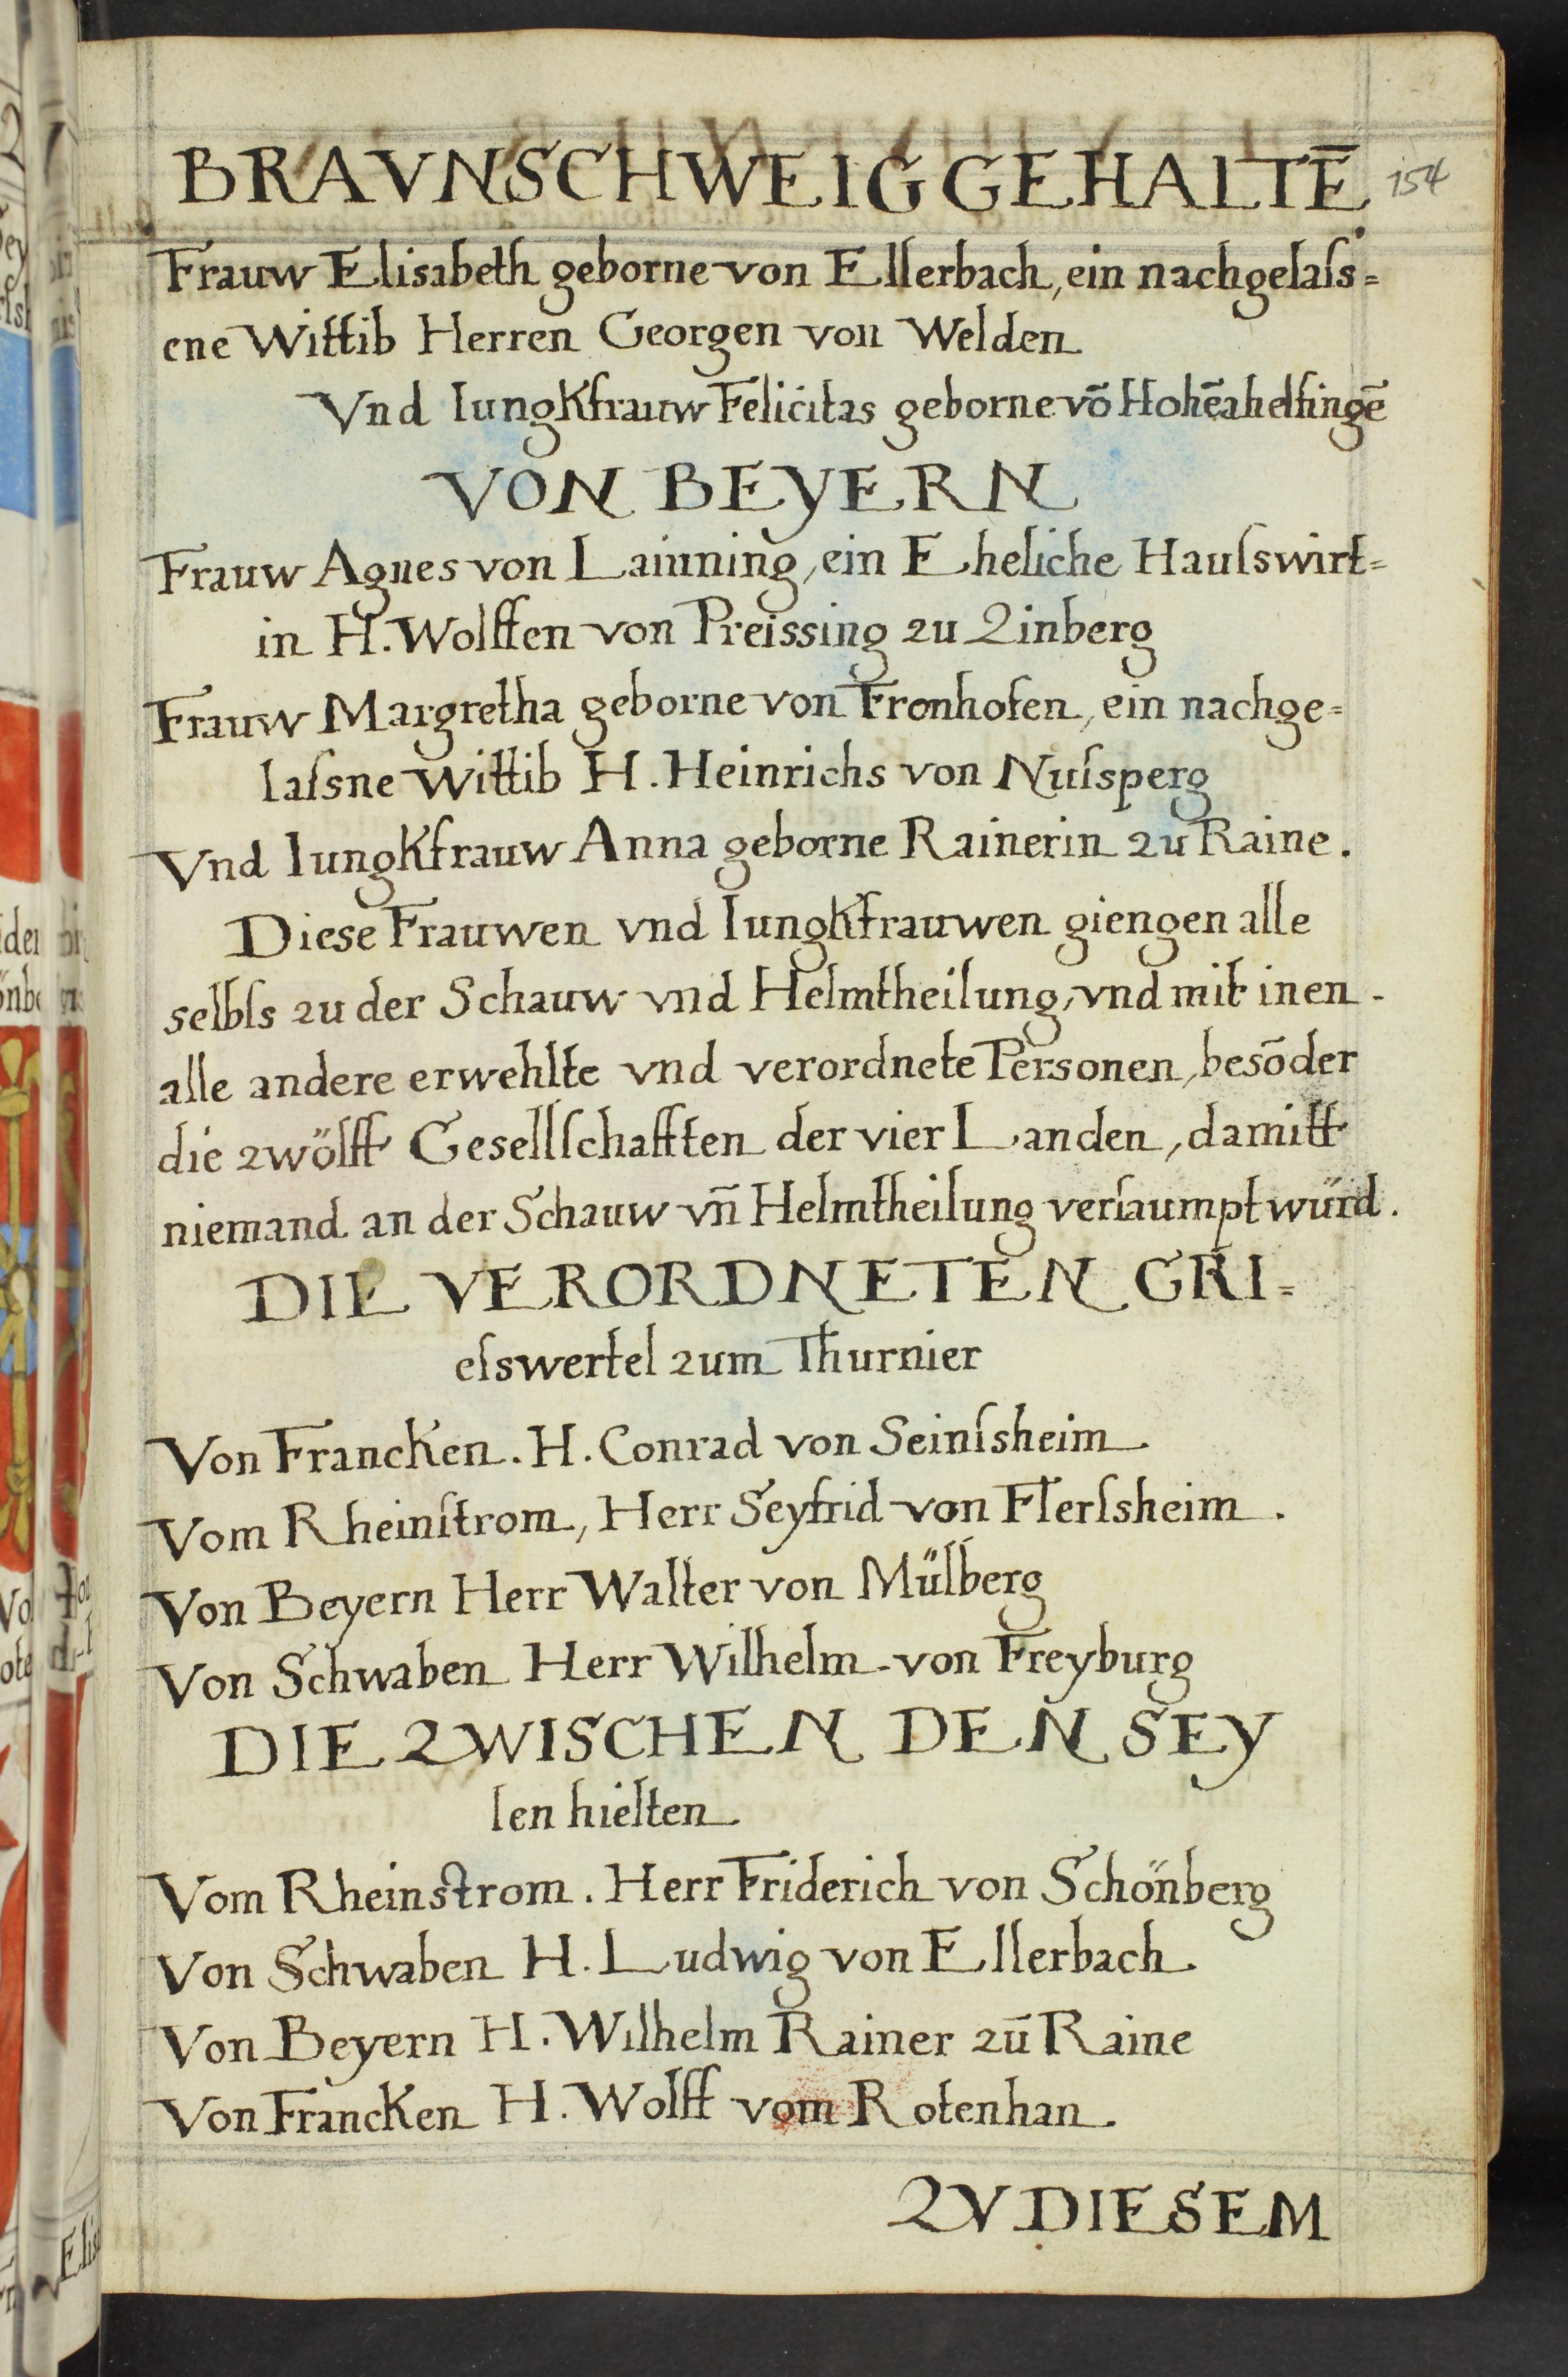 BRAVNSCHWEIG GEHALTĒ.
154
Frauw Elisabeth geborne von Ellerbach, ein nachgelaſs=
ene Wittib Herren Georgen von Welden
Vnd Iungkfrauw Felicitas geborne vō Hohēahelfingē
VON BEYERN
Frauw Agnes von Laiming, ein Eheliche Hauſswirt=
in H. Wolffen von Preissing zu Zinberg
Frauw Margretha geborne von Fronhofen, ein nachge=
laſsne Wittib H. Heinrichs von Nuſsperg
Vnd Iungkfrauw Anna geborne Rainerin zu Raine.
Diese Frauwen vnd Iungkfrauwen giengen alle
selbſs zu der Schauw vnd Helmtheilung, vnd mit inen
alle andere erwehlte vnd verordnete Personen, besōder
die zwölff Gesellſchafften der vier Landen, damitt
niemand an der Schauw vn̄ Helmtheilung verſaumpt würd.
DIE VERORDNETEN GRI=
eſswertel zum Thurnier
Von Francken. H. Conrad von Seinſsheim
Vom Rheinſtrom, Herr Seyfrid von Flerſsheim.
Von Beyern Herr Walter von Mülberg
Von Schwaben Herr Wilhelm von Freyburg
DIE ZWISCHEN DEN SEY
len hielten
Vom Rheinſtrom. Herr Friderich von Schönberg
Von Schwaben H. Ludwig von Ellerbach
Von Beyern H. Wilhelm Rainer zū Raine
Von Francken H. Wolff vom Rotenhan.
ZV DIESEM